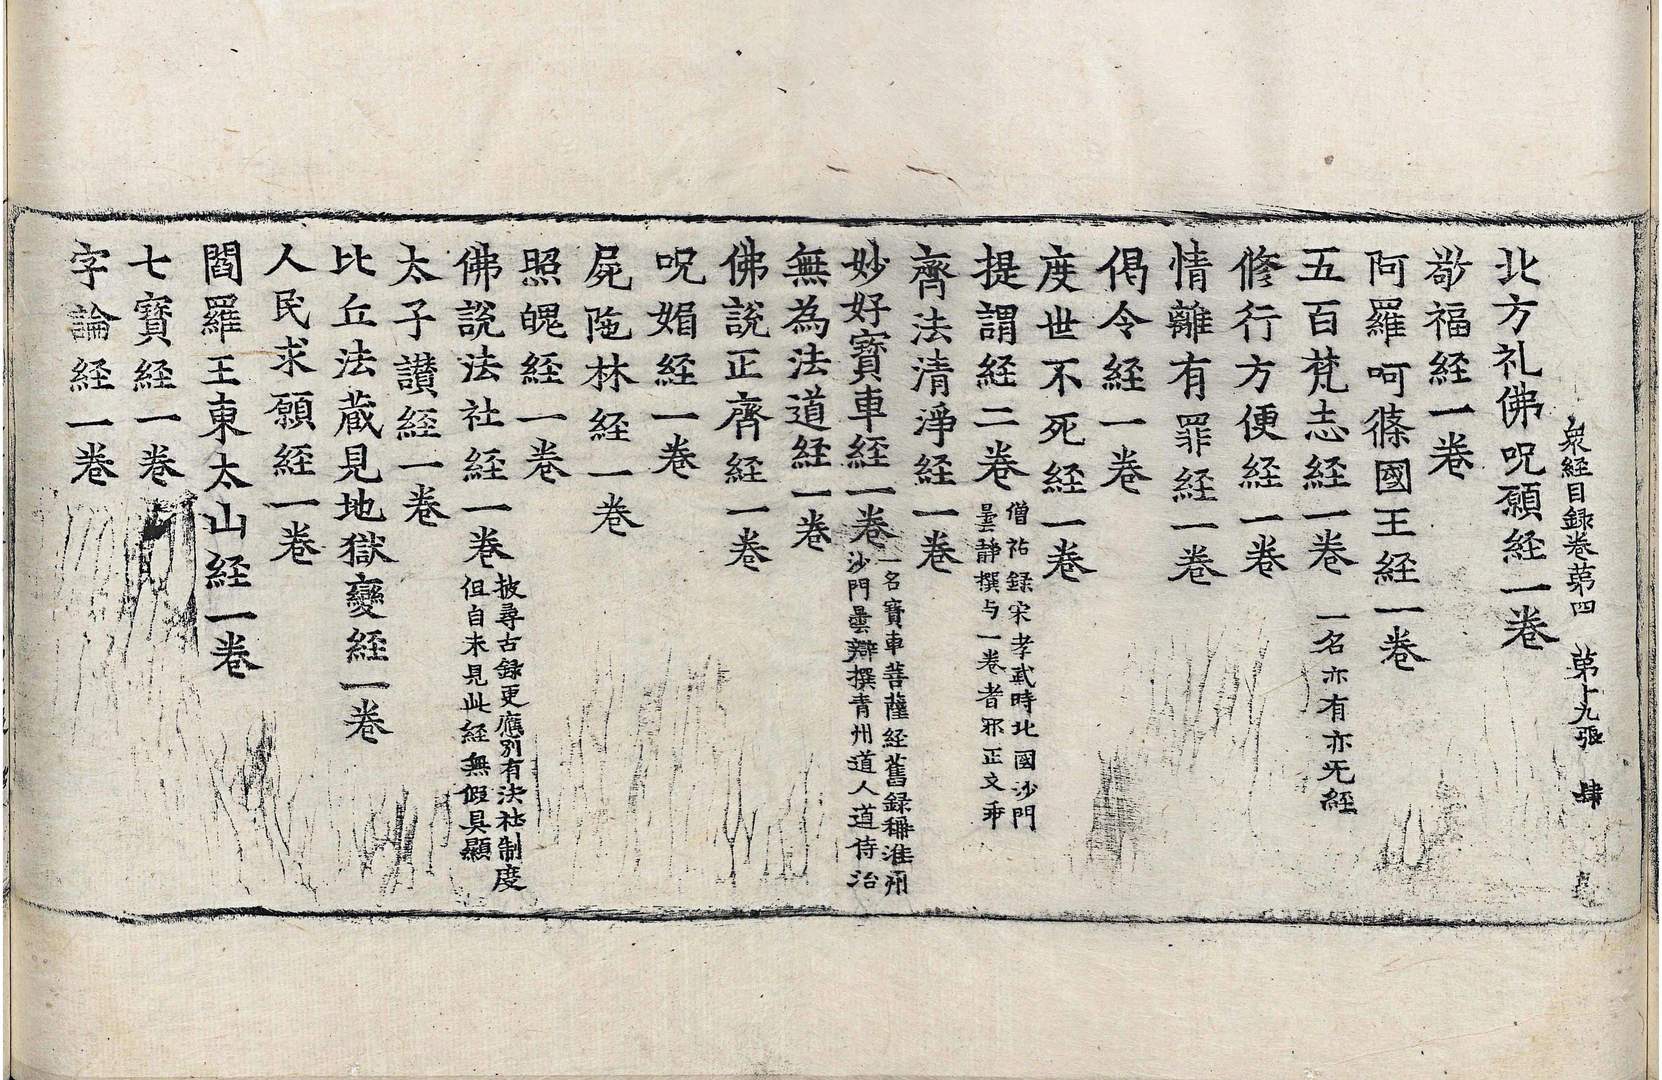 衆経目録卷第四　第十九張　肆
北方礼佛呪願経一卷
敬福経一卷
阿羅呵條國王経一卷
五百梵志経一卷　一名亦有亦无経
修行方便経一卷
情離有罪経一卷
偈令経一卷
度世不死経一卷
提謂経二卷
僧祐録宋孝武時北國沙門
曇靜撰与一卷者邪正文乖
齊法清淨経一卷
妙好寶車経一卷
一名寶車菩薩経舊録稱淮州
沙門曇辯撰青州道人道侍治
無為法道経一卷
佛說正齊経一卷
呪媚経一卷
屍陁林経一卷
照魄経一卷
佛說法社経一卷
披尋古録更應別有法社制度
但自未見此経無假具顯
太子讃経一卷
比丘法蔵見地獄變経一卷
人民求願経一卷
閻羅王東太山経一卷
七寶経一卷
字論経一卷